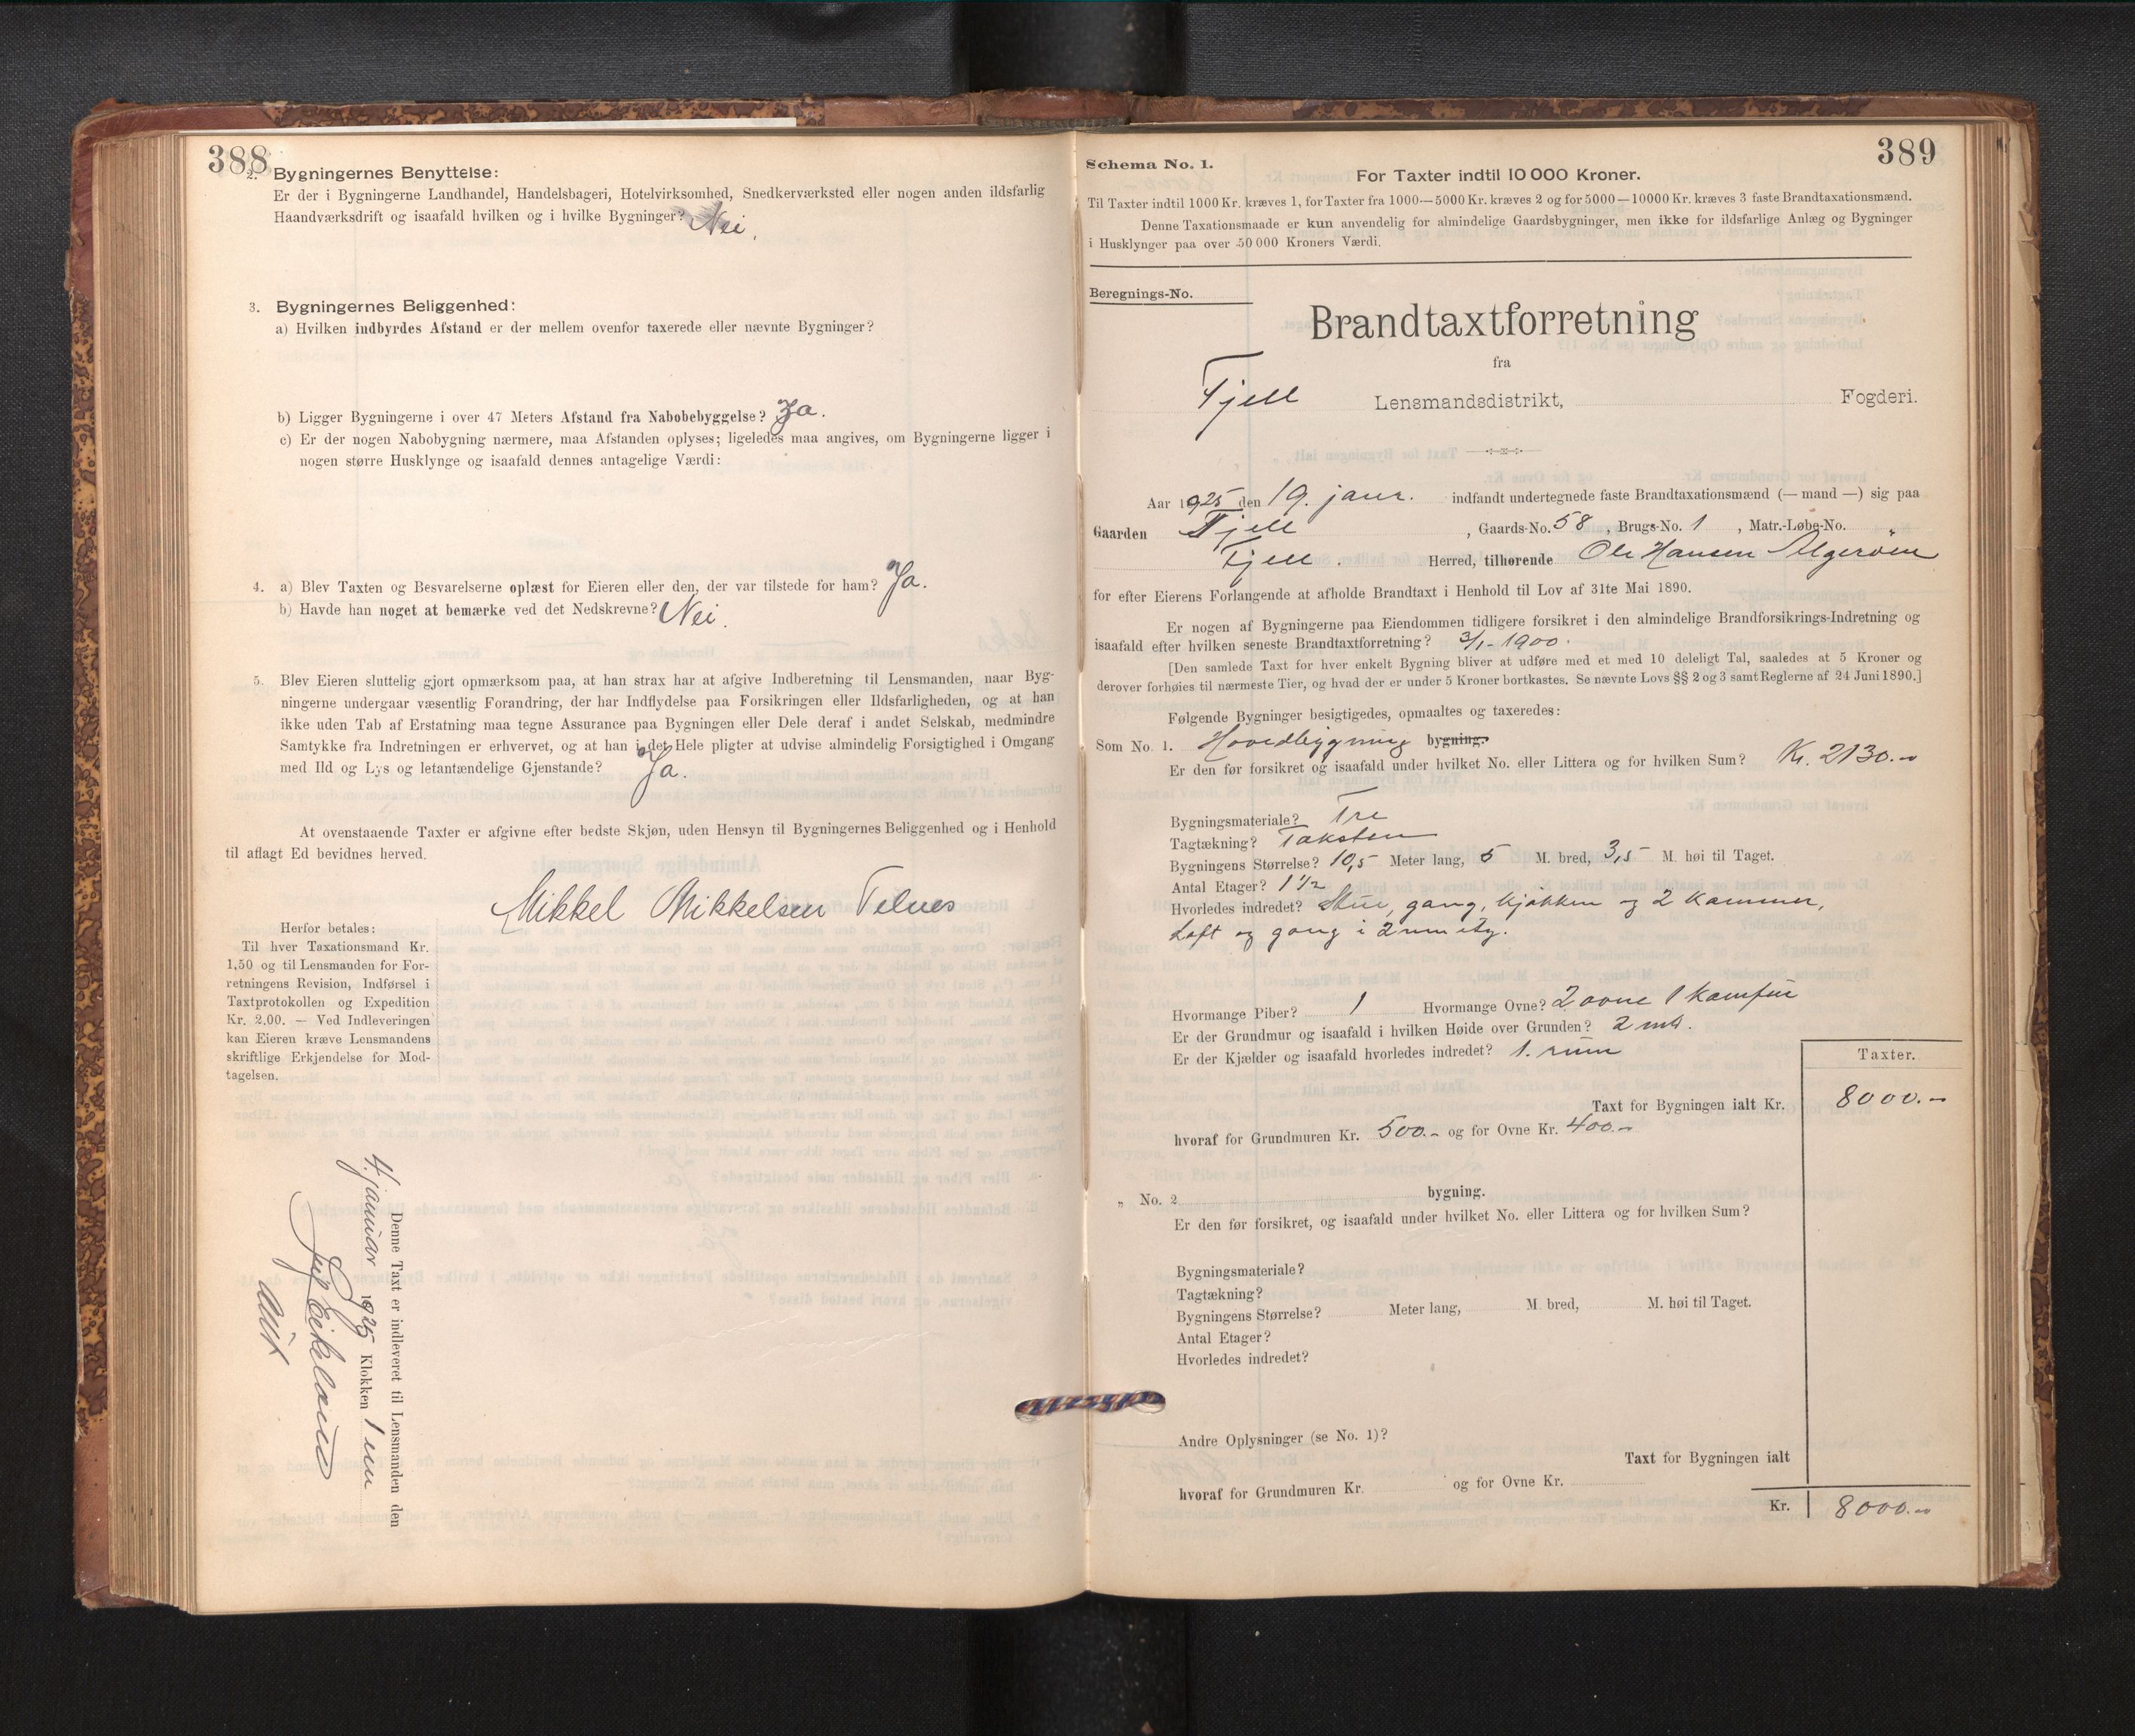 388
2. Bygningernes Benyttelse:
Er der i Bygningerne Landhandel, Handelsbageri, Hotelvirksomhed, Snedkerværksted eller nogen anden ildsfarlig
Haandværksdrift og isaafald hvilken og i hvilke Bygninger? Nei.
3. Bygningernes Beliggenhed:
a) Hvilken indbyrdes Afstand er der mellem ovenfor taxerede eller nævnte Bygninger?
b) Ligger Bygningerne i over 47 Meters Afstand fra Nabobebyggelse? Ja.
c) Er der nogen Nabobygning nærmere, maa Afstanden oplyses; ligeledes maa angives, om Bygningerne ligger i
nogen større Husklynge og isaafald dennes antagelige Værdi:
4. a) Blev Taxten og Besvarelserne oplæst for Eieren eller den, der var tilstede for ham? Ja.
b) Havde han noget at bemærke ved det Nedskrevne? Nei.
5. Blev Eieren sluttelig gjort opmærksom paa, at han strax har at afgive Indberetning til Lensmanden, naar Byg-
ningerne undergaar væsentlig Forandring, der har Indflydelse paa Forsikringen eller Ildsfarligheden, og at han
ikke uden Tab af Erstatning maa tegne Assurance paa Bygningen eller Dele deraf i andet Selskab, medmindre
Samtykke fra Indretningen er erhvervet, og at han i det Hele pligter at udvise almindelig Forsigtighed i Omgang
med Ild og Lys og letantændelige Gjenstande? Ja.
At ovenstaaende Taxter er afgivne efter bedste Skjøn, uden Hensyn til Bygningernes Beliggenhed og i Henhold
til aflagt Ed bevidnes herved.
Mikkel Mikkelsen Telnes
Herfor betales:
Til hver Taxationsmand Kr.
1,50 og til Lensmanden for For-
retningens Revision, Indførsel i
Taxtprotokollen og Expedition
Kr. 2,00. — Ved Indleveringen
kan Eieren kræve Lensmandens
skriftlige Erkjendelse for Mod-
tagelsen.
Denne Taxt er indleveret til Lensmanden den
4. januar 1925 Klokken 1 em
Eikeland
389
Schema No. 1.
For Taxter indtil 10 000 Kroner.
Til Taxter indtil 1000 Kr. kræves 1, for Taxter fra 1000—5000 Kr. kræves 2 og for 5000—10000 Kr. kræves 3 faste Brandtaxationsmænd.
Denne Taxationsmaade er kun anvendelig for almindelige Gaardsbygninger, men ikke for ildsfarlige Anlæg og Bygninger
i Husklynger paa over 50 000 Kroners Værdi.
Beregnings-No.
Brandtaxtforretning
fra
Fjell Lensmandsdistrikt, Fogderi.
Aar 1925 den 19. janr. indfandt undertegnede faste Brandtaxationsmænd (— mand —) sig paa
Gaarden Fjell, Gaards-No. 58, Brugs-No. 1, Matr.-Løbe-No.
Fjell. Herred, tilhørende Ole Hansen Algerøen
for efter Eierens Forlangende at afholde Brandtaxt i Henhold til Lov af 31te Mai 1890.
Er nogen af Bygningerne paa Eiendommen tidligere forsikret i den almindelige Brandforsikrings-Indretning og
isaafald efter hvilken seneste Brandtaxtforretning? 3/1-1900.
[Den samlede Taxt for hver enkelt Bygning bliver at udføre med et med 10 deleligt Tal, saaledes at 5 Kroner og
derover forhøies til nærmeste Tier, og hvad der er under 5 Kroner bortkastes. Se nævnte Lovs §§ 2 og 3 samt Reglerne af 24 Juni 1890.]
Følgende Bygninger besigtigedes, opmaaltes og taxeredes:
Som No. 1. Hovedbygning bygning.
Er den før forsikret og isaafald under hvilket No. eller Littera og for hvilken Sum? Kr. 2130.-
Bygningsmateriale? Tre
Tagtækning? Taksten
Bygningens Størrelse? 10,5 Meter lang, 5 M. bred, 3,5 M. høi til Taget.
Antal Etager? 1 1/2
Hvorledes indredet? Stue, gang, kjøkken og 2 kammer,
Loft og gang i 2nen etg.
Hvormange Piber? 1 Hvormange Ovne? 2 ovne 1 kamfür
Er der Grundmur og isaafald i hvilken Høide over Grunden? 2 mtr.
Er der Kjælder og isaafald hvorledes indredet? 1. rum
Taxter.
Taxt for Bygningen ialt Kr. 8000.-
hvoraf for Grundmuren Kr. 500.- og for Ovne Kr. 400.-
„ No. 2 bygning.
Er den før forsikret, og isaafald under hvilket No. eller Littera og for hvilken Sum?
Bygningsmateriale?
Tagtækning?
Bygningens Størrelse? Meter lang, M. bred, M. høi til Taget.
Antal Etager?
Hvorledes indredet?
Andre Oplysninger (se No. 1)?
Taxt for Bygningen ialt
hvoraf for Grundmuren Kr. og for Ovne Kr.
Kr. 8000.-